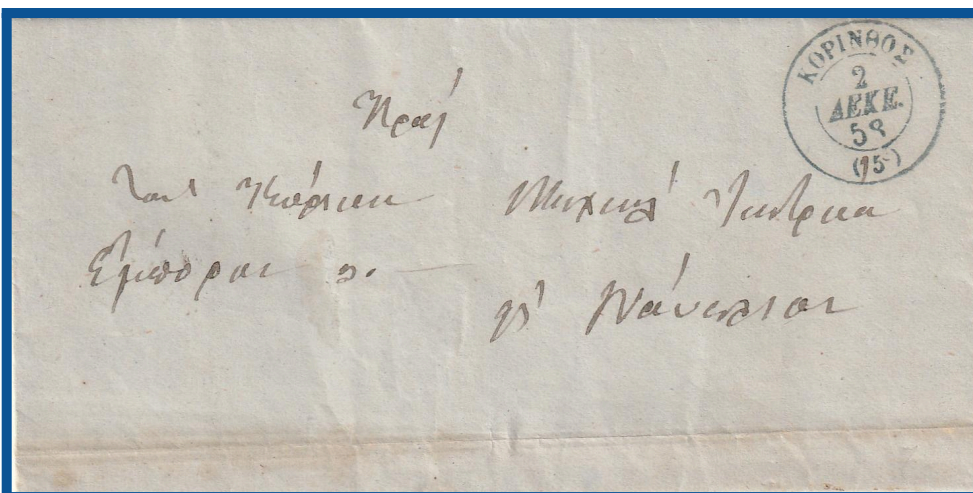 ΚΟΡΙΝΘΟΣ
2
ΔΕΚΕ.
58
(15)
Πρὸς
Τον Κύριον Μιχαήλ
Έμπορον
Ναύπλιον